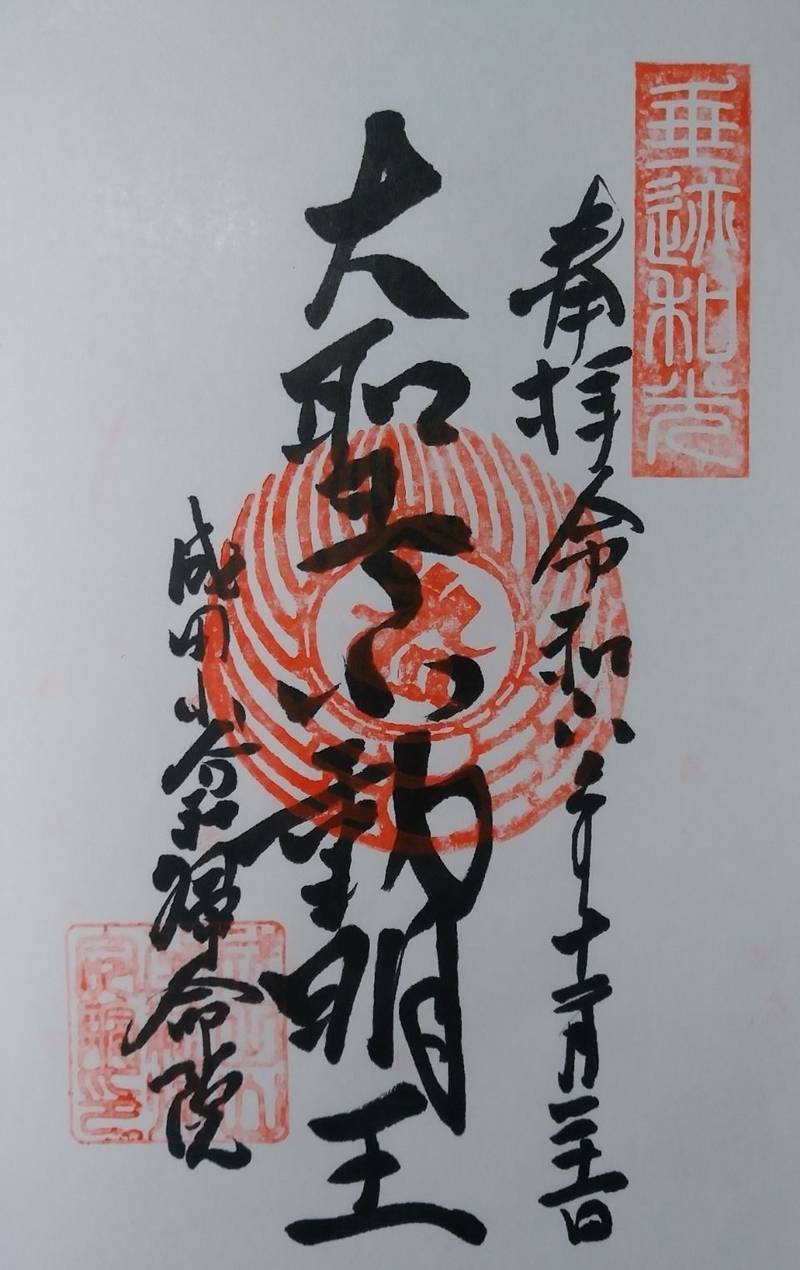 垂迹和光
奉拝 令和六年十一月二十一日
大聖不動明王
成田山 命院